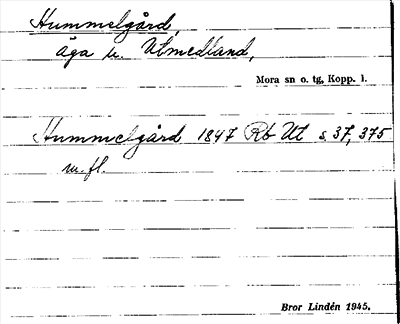 Hummelgård,
äga u. Utmedland,
Mora sn o. tg, Kopp. l.
Hummelgård 1847 Rb Ut s. 37, 375
m.fl.
Bror Lindén 1945.